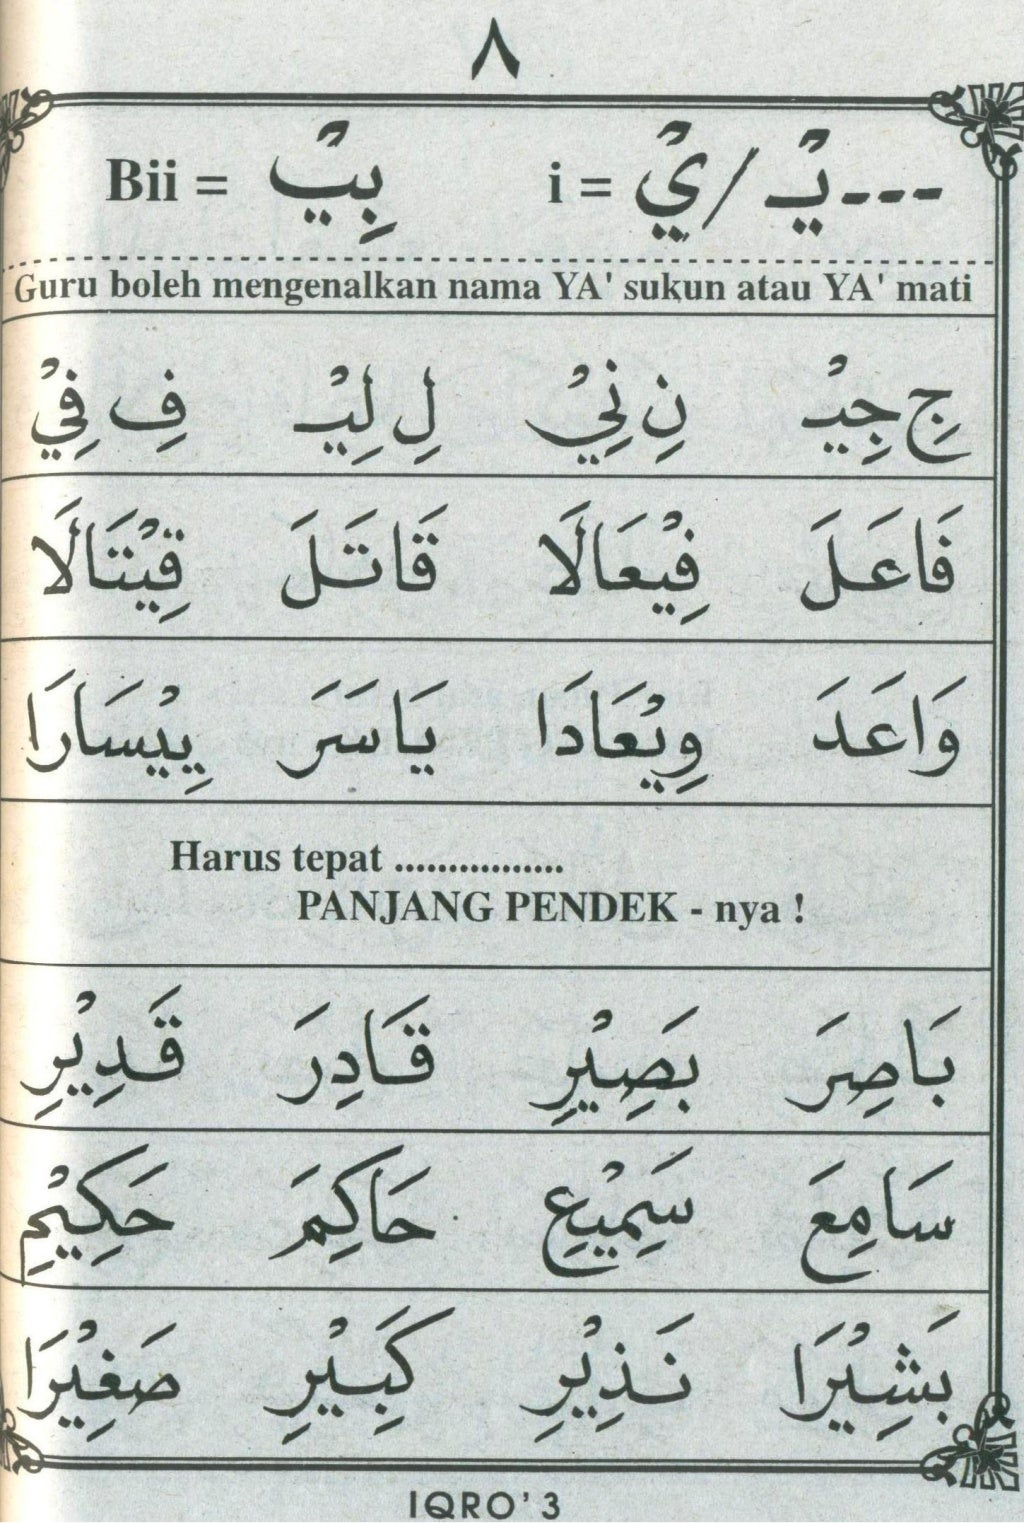 ٨
---يْـ / يْ = i    بِيْـ = Bii
Guru boleh mengenalkan nama YA' sukun atau YA' mati
جِ جِيْـ نِ نِيْ لِ لِيْـ فِ فِيْ
فَاعَلَ فِيْعَالَا قَاتَلَ قِيْتَالَا
وَاعَدَ وِيْعَادَا يَاسَرَ يِيْسَارَا
Harus tepat ................
PANJANG PENDEK - nya !
بَاصِرَ بَصِيْرِ قَادِرَ قَدِيْرِ
سَامِعَ سَمِيْعِ حَاكِمَ حَكِيْمِ
بَشِيْرَا نَذِيْرِ كَبِيْرِ صَغِيْرَا
IQRO' 3